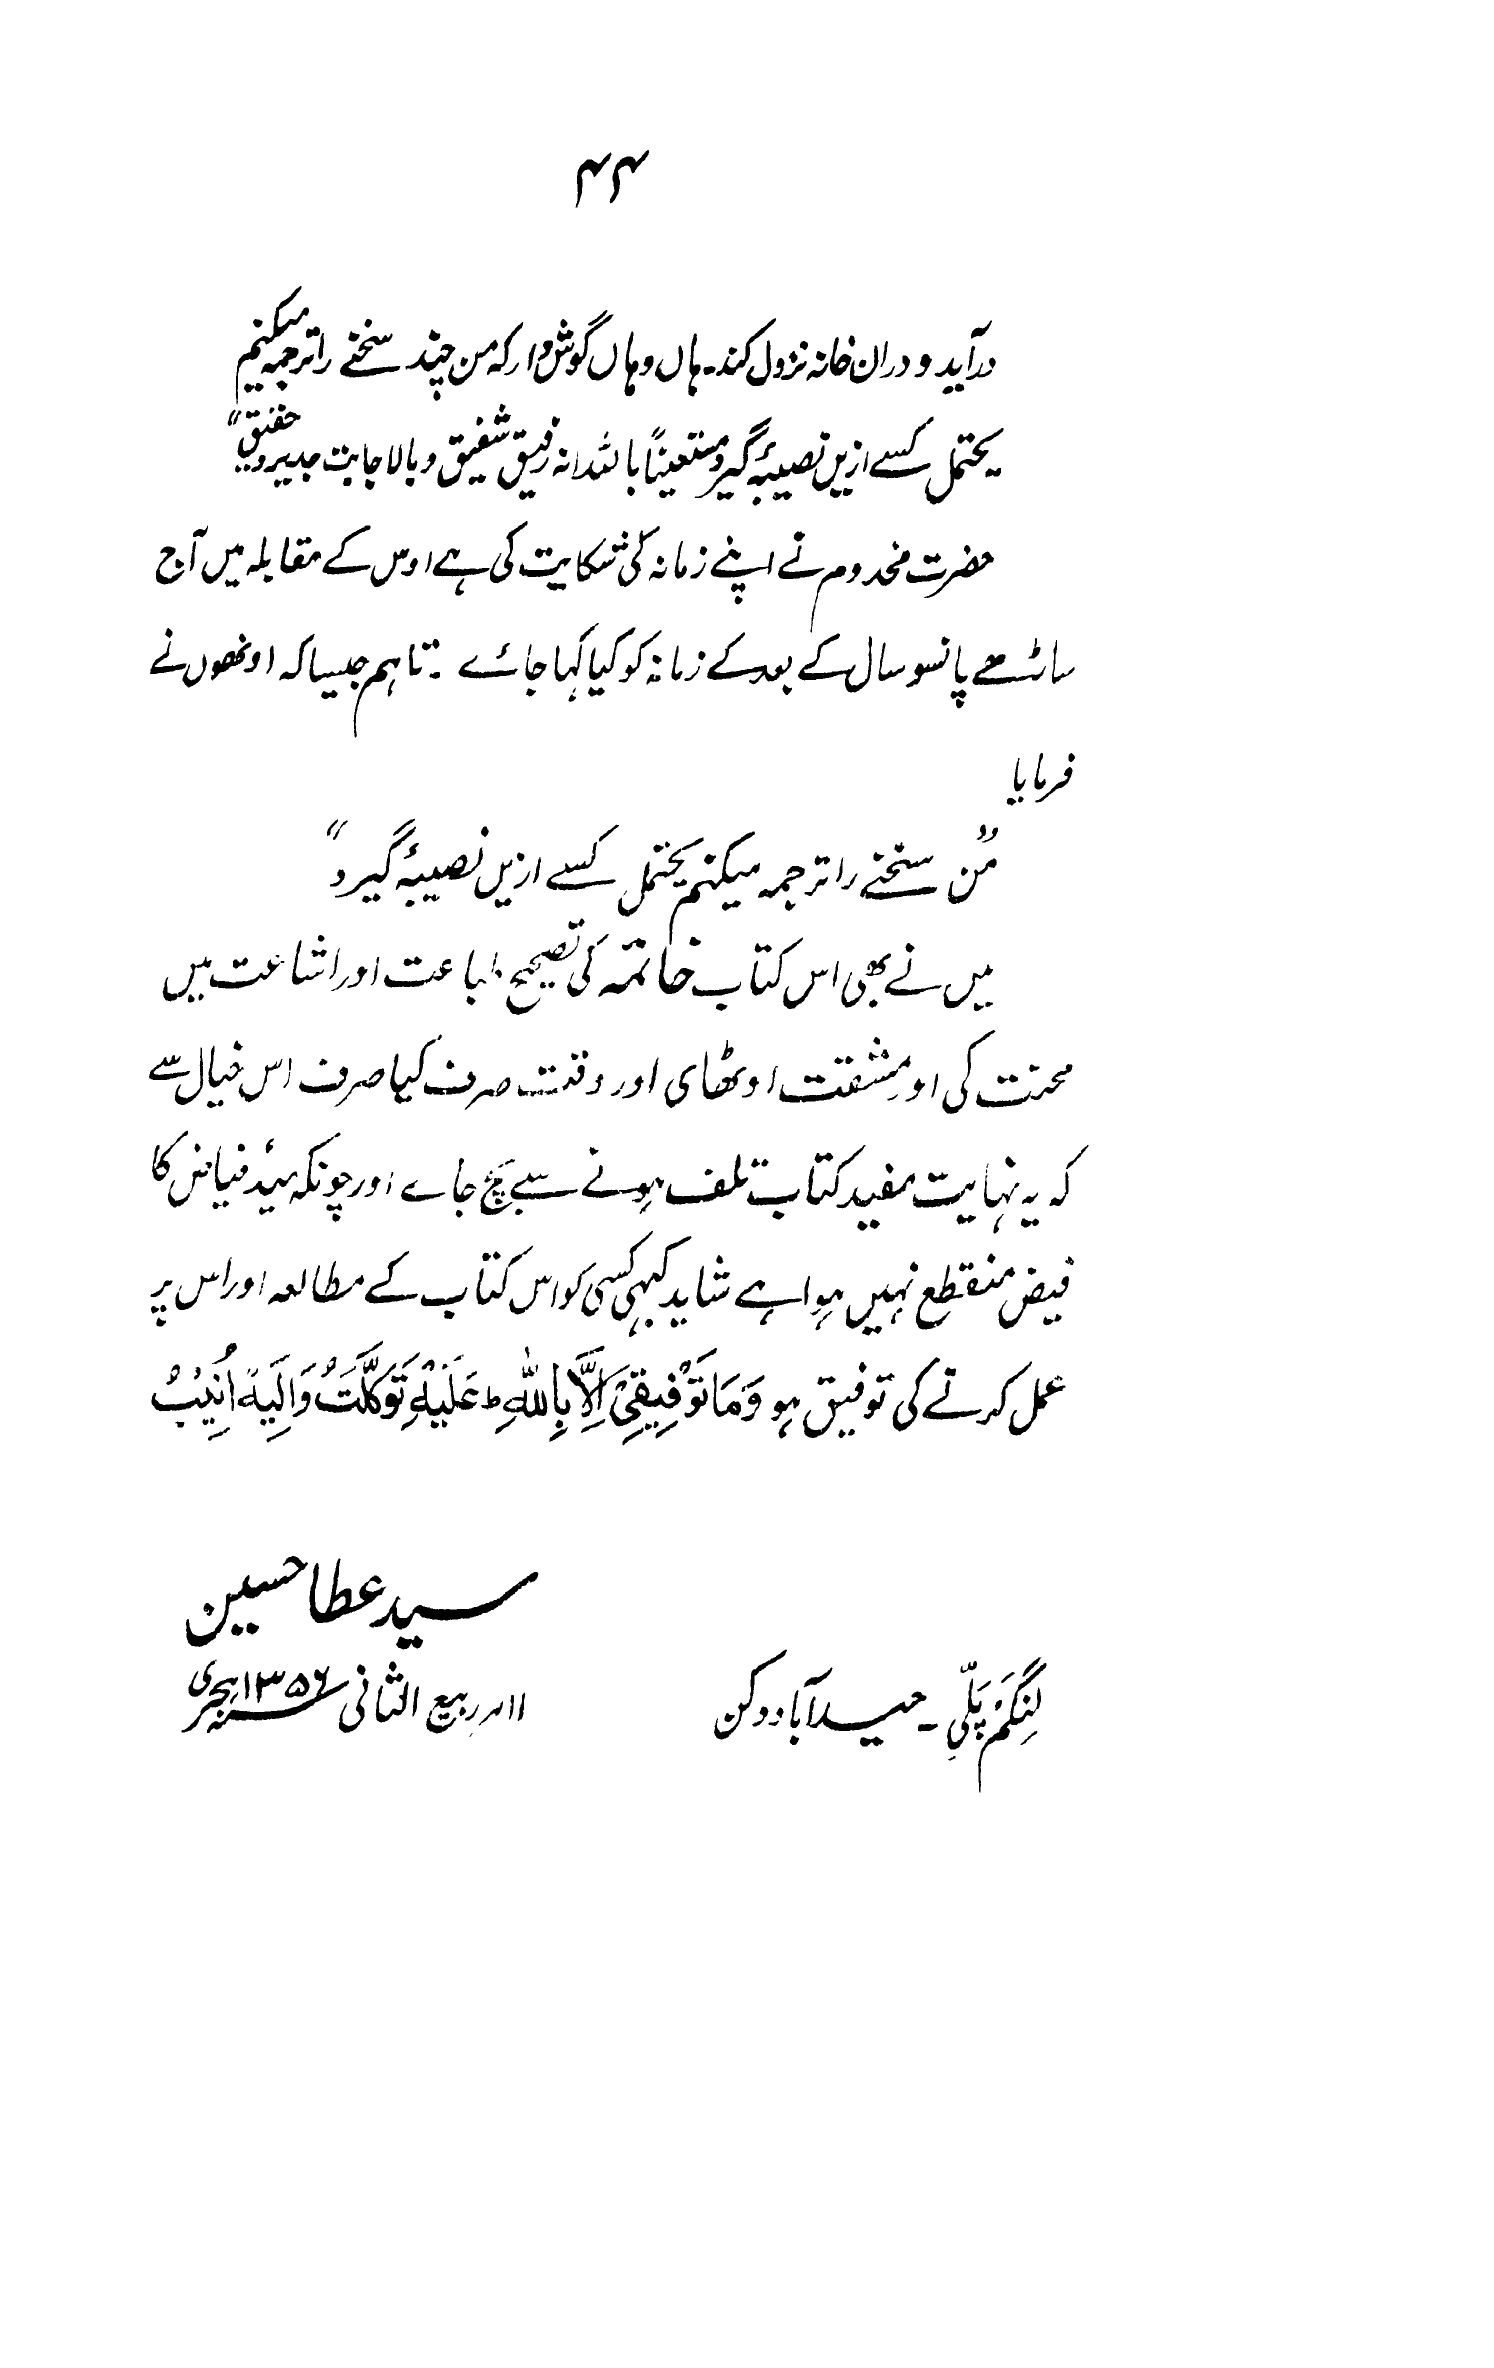 ۴۴
درآید و دران خانہ نزول کند۔ ہاں و ہاں گوش دار کہ من چند سخنے را ترجمہ میکنم
یحتمل کسے ازیں نصیبۂ گیرد مستعیناً باللہ انہ رفیق شفیق و بالاجابت جدیر و حقیق"
حضرت مخدوم نے اپنے زمانہ کی شکایت کی ہے اوس کے مقابلہ میں آج
ساٹھے پانسو سال کے بعد کے زمانہ کو کیا کہا جائے ۔ تاہم جیسا کہ اونھوں نے
فرمایا
"من سخنے را ترجمہ میکنم یحتمل کسے ازیں نصیبۂ گیرد"
میں نے بھی اس کتاب خاتمہ کی تصحیح طباعت اور اشاعت میں
محنت کی اور مشقت اوٹھای اور وقت صرف کیا صرف اس خیال سے
کہ یہ نہایت مفید کتاب تلف ہونے سے بچ جاے اور چونکہ مبدٔ فیاض کا
فیض منقطع نہیں ہوا ہے شاید کبہی کسی کو اس کتاب کے مطالعہ اور اس پر
عمل کرنے کی توفیق ہو وَمَا تَوْفِیْقِیْ اِلَّا بِاللّٰهِ ط عَلَیْهِ تَوَکَّلْتُ وَاِلَیْهِ اُنِیْبُ
سید عطا حسین
لِنگَمْ پَلِّی ۔ حیدرآباد دکن ۱۱؍ ربیع الثانی ۱۳۵۶ سنہ ہجری